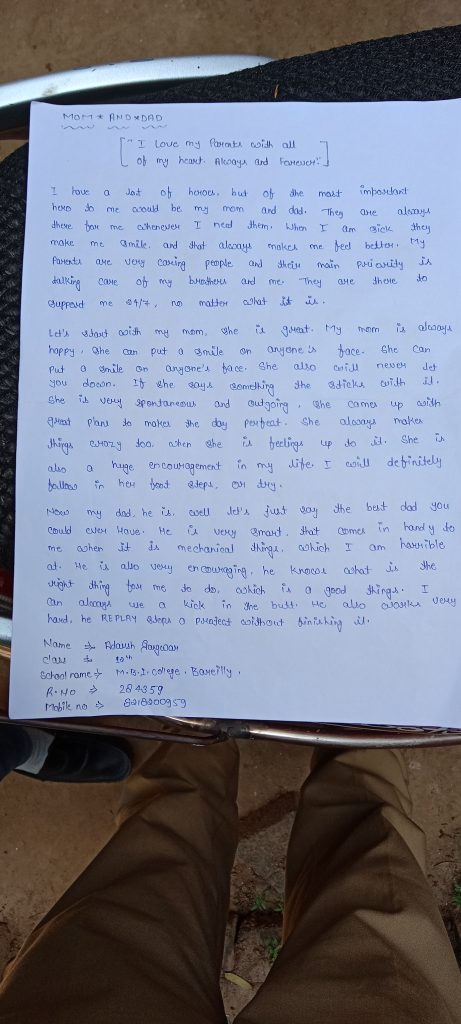 MOM * AND * DAD
["I Love my Parents with all
of my heart. Always and Forever."]
I have a lot of heroes, but of the most important
hero to me would be my mom and dad. They are always
there for me whenever I need them. When I am sick they
make me smile, and that always makes me feel better. My
Parents are very caring people and their main priority is
talking care of my brothers and me. They are there to
support me 24/7, no matter what it is.
Let's start with my mom, she is great. My mom is always
happy, she can put a smile on anyone's face. She can
put a smile on anyone's face. She also will never let
you down. If she says something the sticks with it.
She is very spontaneous and outgoing, she comes up with
great plans to makes the day perfect. She always makes
things crazy too when she is feelings up to it. She is
also a huge encouragement in my life. I will definitely
follow in her foot steps, or try.
Now my dad, he is, well let's just say the best dad you
could ever have. He is very smart, that comes in handy to
me when it is mechanical things, which I am horrible
at. He is also very encouraging, he knows what is the
right thing for me to do, which is a good things. I
can always use a kick in the butt. He also works very
hard, he REPLAY steps a project without finishing it.
Name ⇒ Adarsh Gangwar
Class ⇒ 10th
School name ⇒ M.B.I. College, Bareilly.
R.NO ⇒ 284359
Mobile no ⇒ 8218200959